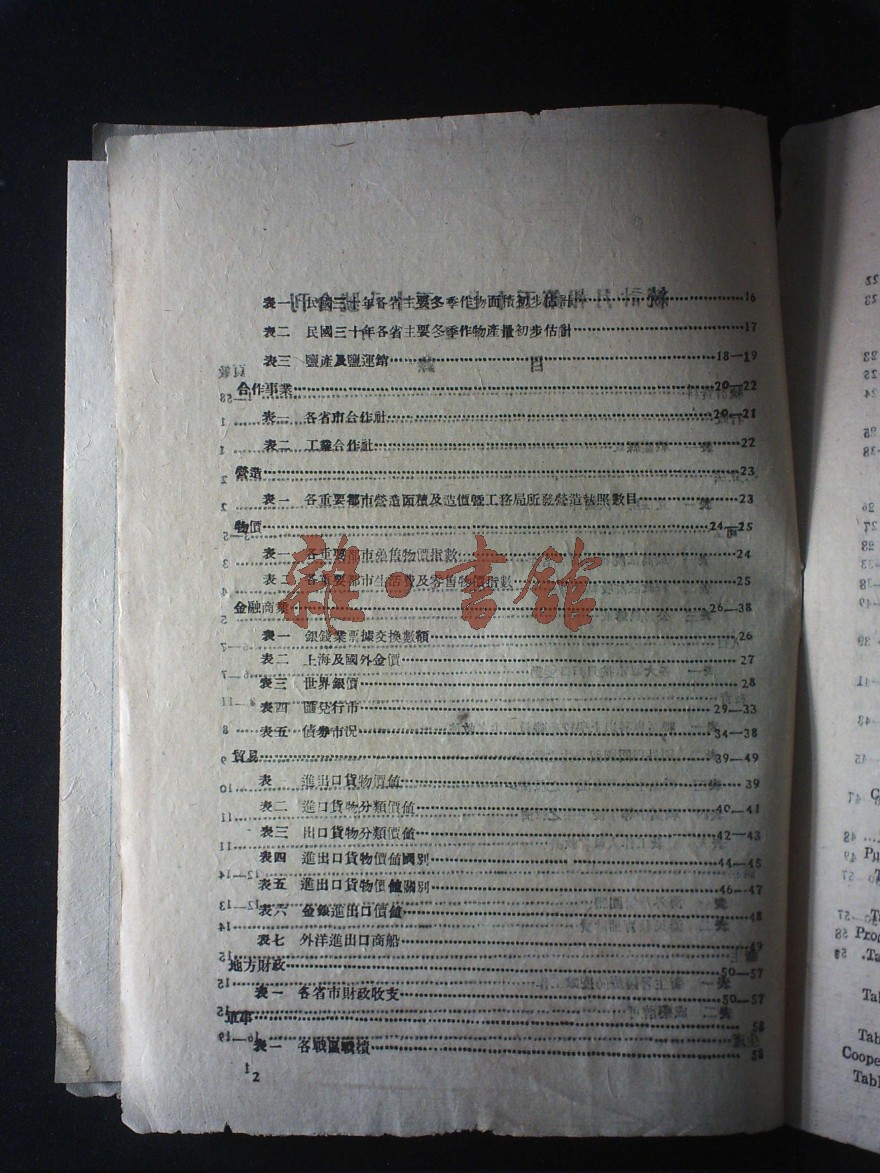 表一 民國三十年各省主要冬季作物面積初步估計 16
表二 民國三十年各省主要冬季作物產量初步估計 17
表三 鹽產及鹽運銷 18—19
合作事業 20—22
表一 各省市合作社 20—21
表二 工業合作社 22
營造 23
表一 各重要都市營造面積及造價暨工務局所發營造執照數目 23
物價 24—25
表一 各重要都市躉售物價指數 24
表二 各重要都市生活費及零售物價指數 25
金融商業 26—38
表一 銀錢業票據交換數額 26
表二 上海及國外金價 27
表三 世界銀價 28
表四 匯兌行市 29—33
表五 債券市況 34—38
貿易 39—49
表一 進出口貨物價值 39
表二 進口貨物分類價值 40—41
表三 出口貨物分類價值 42—43
表四 進出口貨物價值國別 44—45
表五 進出口貨物價值關別 46—47
表六 金銀進出口價值 48
表七 外洋進出口商船 49
地方財政 50—57
表一 各省市財政收支 50—57
軍事 58
表一 各戰區戰績 58
2
雜·書館
Tab
Coope
Tabl